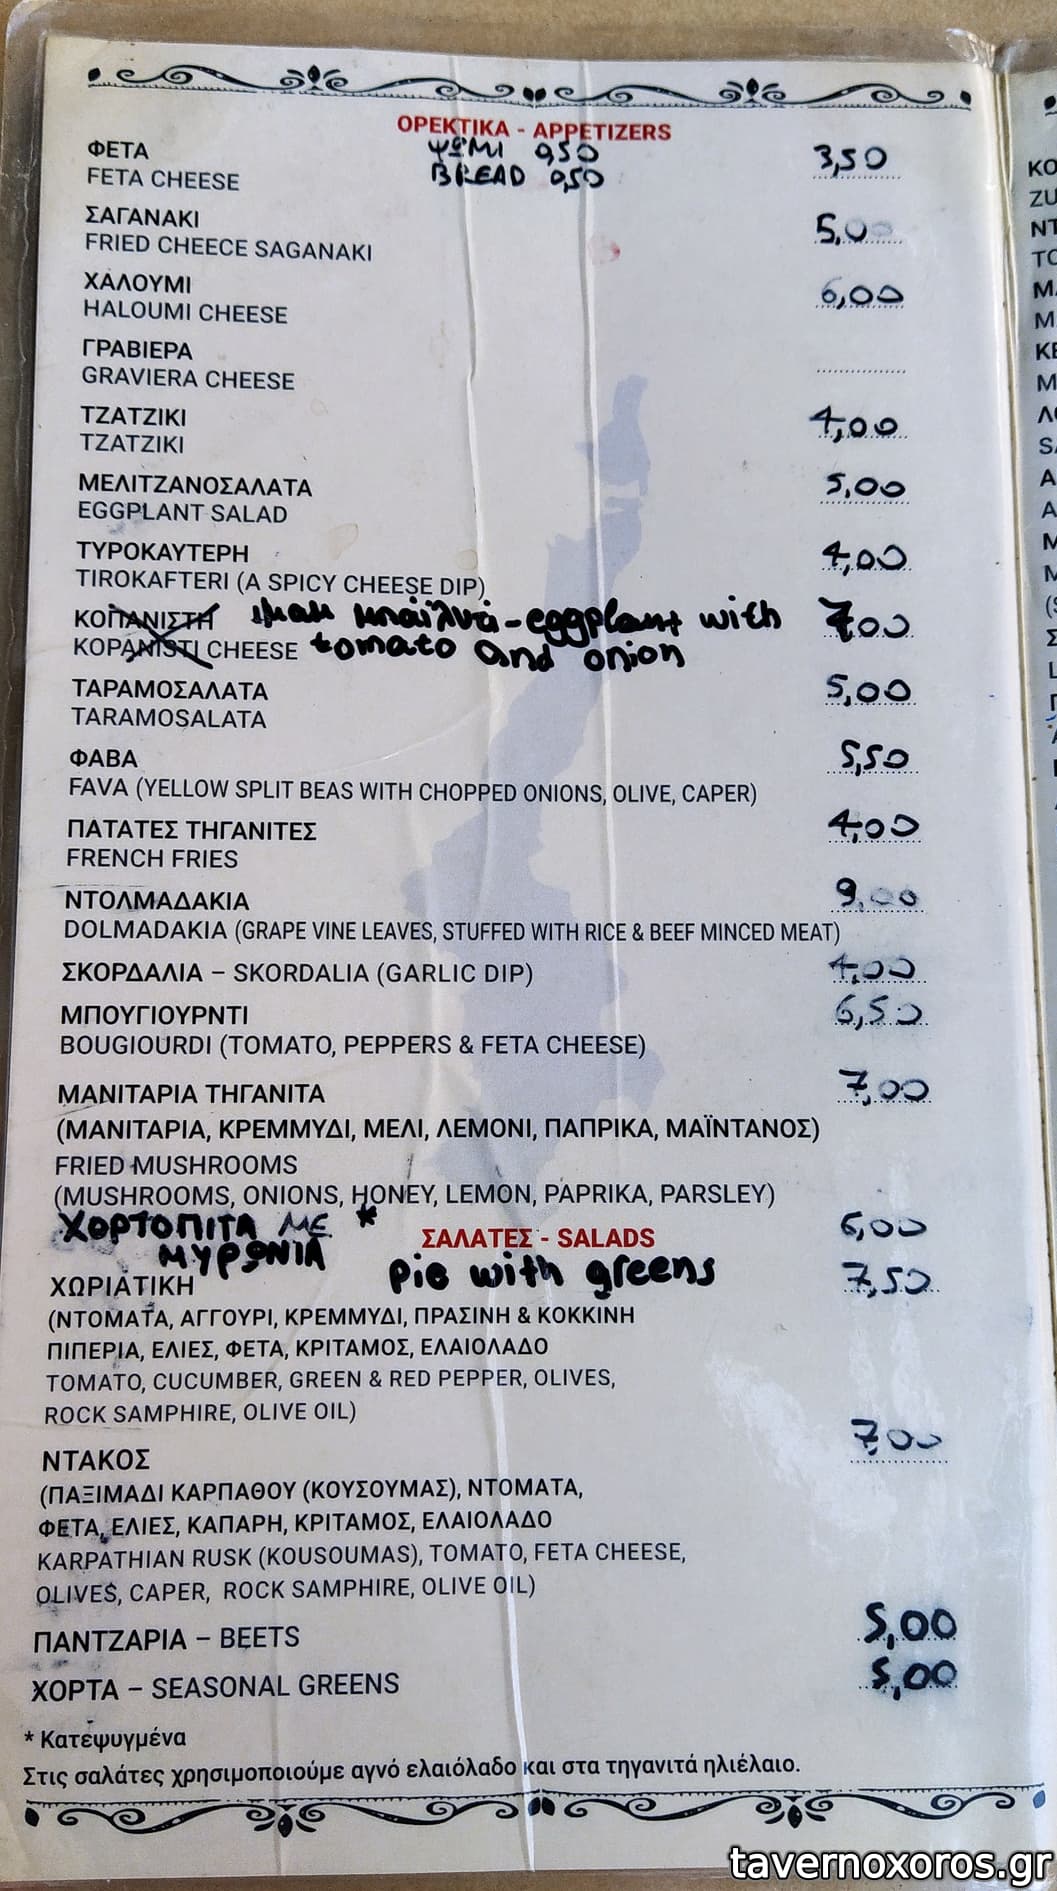 ΟΡΕΚΤΙΚΑ - APPETIZERS
ΨΩΜΙ 0,50
BREAD 0,50
ΦΕΤΑ 3,50
FETA CHEESE
ΣΑΓΑΝΑΚΙ 5,00
FRIED CHEECE SAGANAKI
ΧΑΛΟΥΜΙ 6,00
HALOUMI CHEESE
ΓΡΑΒΙΕΡΑ
GRAVIERA CHEESE
ΤΖΑΤΖΙΚΙ 4,00
TZATZIKI
ΜΕΛΙΤΖΑΝΟΣΑΛΑΤΑ 5,00
EGGPLANT SALAD
ΤΥΡΟΚΑΥΤΕΡΗ 4,00
TIROKAFTERI (A SPICY CHEESE DIP)
ΚΟΠΑΝΙΣΤΗ ιμαμ μπαϊλντί - eggplant with 7,00
KOPANISTI CHEESE tomato and onion
ΤΑΡΑΜΟΣΑΛΑΤΑ 5,00
TARAMOSALATA
ΦΑΒΑ 5,50
FAVA (YELLOW SPLIT BEAS WITH CHOPPED ONIONS, OLIVE, CAPER)
ΠΑΤΑΤΕΣ ΤΗΓΑΝΙΤΕΣ 4,00
FRENCH FRIES
ΝΤΟΛΜΑΔΑΚΙΑ 9,00
DOLMADAKIA (GRAPE VINE LEAVES, STUFFED WITH RICE & BEEF MINCED MEAT)
ΣΚΟΡΔΑΛΙΑ – SKORDALIA (GARLIC DIP) 4,00
ΜΠΟΥΓΙΟΥΡΝΤΙ 6,50
BOUGIOURDI (TOMATO, PEPPERS & FETA CHEESE)
ΜΑΝΙΤΑΡΙΑ ΤΗΓΑΝΙΤΑ 7,00
(ΜΑΝΙΤΑΡΙΑ, ΚΡΕΜΜΥΔΙ, ΜΕΛΙ, ΛΕΜΟΝΙ, ΠΑΠΡΙΚΑ, ΜΑΪΝΤΑΝΟΣ)
FRIED MUSHROOMS
(MUSHROOMS, ONIONS, HONEY, LEMON, PAPRIKA, PARSLEY)
ΧΟΡΤΟΠΙΤΑ ΜΕ * 6,00
ΜΥΡΩΝΙΑ
ΣΑΛΑΤΕΣ - SALADS
pie with greens
ΧΩΡΙΑΤΙΚΗ 7,50
(ΝΤΟΜΑΤΑ, ΑΓΓΟΥΡΙ, ΚΡΕΜΜΥΔΙ, ΠΡΑΣΙΝΗ & ΚΟΚΚΙΝΗ
ΠΙΠΕΡΙΑ, ΕΛΙΕΣ, ΦΕΤΑ, ΚΡΙΤΑΜΟΣ, ΕΛΑΙΟΛΑΔΟ
TOMATO, CUCUMBER, GREEN & RED PEPPER, OLIVES,
ROCK SAMPHIRE, OLIVE OIL)
ΝΤΑΚΟΣ 7,00
(ΠΑΞΙΜΑΔΙ ΚΑΡΠΑΘΟΥ (ΚΟΥΣΟΥΜΑΣ), ΝΤΟΜΑΤΑ,
ΦΕΤΑ, ΕΛΙΕΣ, ΚΑΠΑΡΗ, ΚΡΙΤΑΜΟΣ, ΕΛΑΙΟΛΑΔΟ
KARPATHIAN RUSK (KOUSOUMAS), TOMATO, FETA CHEESE,
OLIVES, CAPER, ROCK SAMPHIRE, OLIVE OIL)
ΠΑΝΤΖΑΡΙΑ – BEETS 5,00
ΧΟΡΤΑ – SEASONAL GREENS 5,00
* Κατεψυγμένα
Στις σαλάτες χρησιμοποιούμε αγνό ελαιόλαδο και στα τηγανιτά ηλιέλαιο.
tavernoxoros.gr